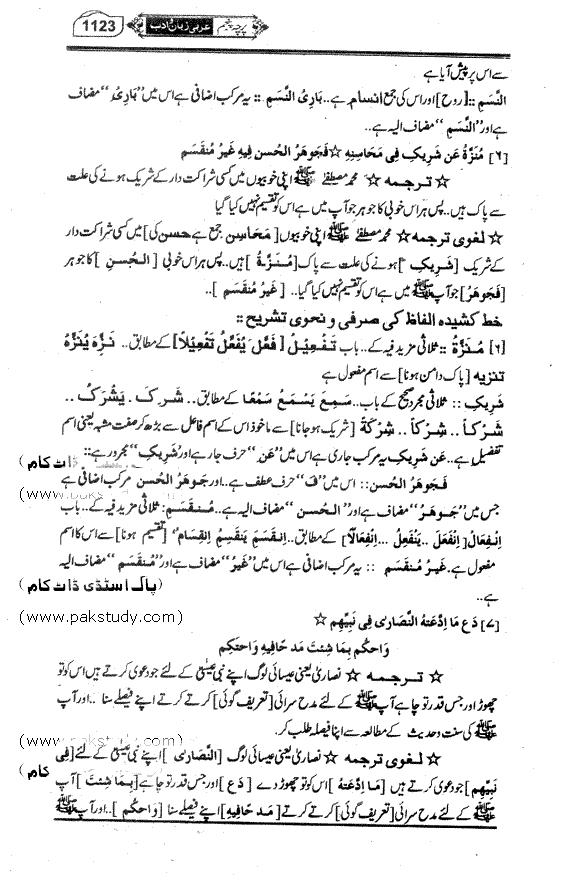 1123 عربی زبان و ادب پرچہ پنجم
سے اس پر پیش آیا ہے
النَّسَمِ :: [روح] اور اس کی جمع انسام ہے.. بَارِیُ النَّسَمِ :: یہ مرکب اضافی ہے اس میں ”بَارِیُ“ مضاف
ہے اور ”النَّسَمِ“ مضاف الیہ ہے..
[۶] مُنَزَّهٌ عَن شَرِیکٍ فِی مَحَاسِنِهٖ ☆ فَجَوهَرُ الحُسنِ فِیهِ غَیرُ مُنقَسَمِ
☆ ترجمہ ☆ محمد مصطفیٰ ﷺ اپنی خوبیوں میں کسی شراکت دار کے شریک ہونے کی علت
سے پاک ہیں.. پس ہر اس خوبی کا جوہر جو آپ میں ہے اس کو تقسیم نہیں کیا گیا
☆ لغوی ترجمہ ☆ محمد مصطفیٰ ﷺ اپنی خوبیوں [مَحَاسِن جمع ہے حسن کی] میں کسی شراکت دار
کے شریک [شَرِیکٍ] ہونے کی علت سے پاک [مُنَزَّهٌ] ہیں.. پس ہر اس خوبی [الحُسنِ] کا جوہر
[فَجَوهَرُ] جو آپ ﷺ میں ہے اس کو تقسیم نہیں کیا گیا.. [غَیرُ مُنقَسَمِ]..
خط کشیدہ الفاظ کی صرفی و نحوی تشریح ::
[۶] مُنَزَّهٌ :: ثلاثی مزید فیہ کے.. باب تَفعِیلُ [فَعَّلَ یُفَعِّلُ تَفعِیلاً] کے مطابق.. نَزَّهَ یُنَزِّهُ
تنزیہ [پاک دامن ہونا] سے اسم مفعول ہے
شَرِیکٍ :: ثلاثی مجرد صحیح کے باب.. سَمِعَ یَسمَعُ سَمعًا کے مطابق.. شَرِکَ . یَشرَکُ ..
شَرکاً.. شِرکاً.. شِرکَةً [شریک ہو جانا] سے ماخوذ اس کے اسم فاعل سے بڑھ کر صفت مشبہ یعنی اسم
تفضیل ہے.. عَن شَرِیکٍ یہ مرکب جاری ہے اس میں ”عَن“ حرف جار ہے اور ”شَرِیکٍ“ مجرور ہے::
ڈاٹ کام )
فَجَوهَرُ الحُسنِ:: اس میں ”فَ“ حرف عطف ہے.. اور جَوهَرُ الحُسنِ مرکب اضافی ہے
(www.pakstudy.com)
جس میں ”جَوهَرُ“ مضاف ہے اور ”الحُسنِ“ مضاف الیہ ہے.. مُنقَسَمِ: ثلاثی مزید فیہ کے.. باب
اِنفِعَالُ [اِنفَعَلَ .. یَنفَعِلُ ... اِنفِعَالاً] کے مطابق.. اِنقَسَمَ یَنقَسِمُ اِنقِسَام [تقسیم ہونا] سے اس کا اسم
مفعول ہے. غَیرُ مُنقَسَمِ :: یہ مرکب اضافی ہے اس میں ”غَیرُ“ مضاف ہے اور ”مُنقَسَمِ“ مضاف الیہ
ہے..
(پاک اسٹڈی ڈاٹ کام
(www.pakstudy.com)
[۷] دَع مَا ادَّعَتهُ النَّصَارٰی فِی نَبِیِّهِم ☆
وَاحکُم بِمَا شِئتَ مَدحًافِیهِ وَاحتَکِم
☆ ترجمہ ☆ نصاریٰ یعنی عیسائی لوگ اپنے نبی عیسیٰؑ کے لئے جو دعویٰ کرتے ہیں اس کو تو
چھوڑ اور جس قدر تو چاہے آپ ﷺ کے لئے مدح سرائی [تعریف گوئی] کرتے کرتے اپنے فیصلے سنا .. اور آپ
ﷺ کی سنت و حدیث کے مطالعہ سے اپنا فیصلہ طلب کر.
(www.pakstudy.com)
☆ لغوی ترجمہ ☆ نصاریٰ یعنی عیسائی لوگ [النَّصَارٰی] اپنے نبی عیسیٰؑ کے لئے [فِی
نَبِیِّهِم] جو دعویٰ کرتے ہیں [مَا ادَّعَتهُ] اس کو تو چھوڑ دے [دَع] اور جس قدر تو چاہے [بِمَا شِئتَ] آپ
کام )
ﷺ کے لئے مدح سرائی [تعریف گوئی] کرتے کرتے [مَدحًافِیهِ] اپنے فیصلے سنا [وَاحکُم].. اور آپ ﷺ